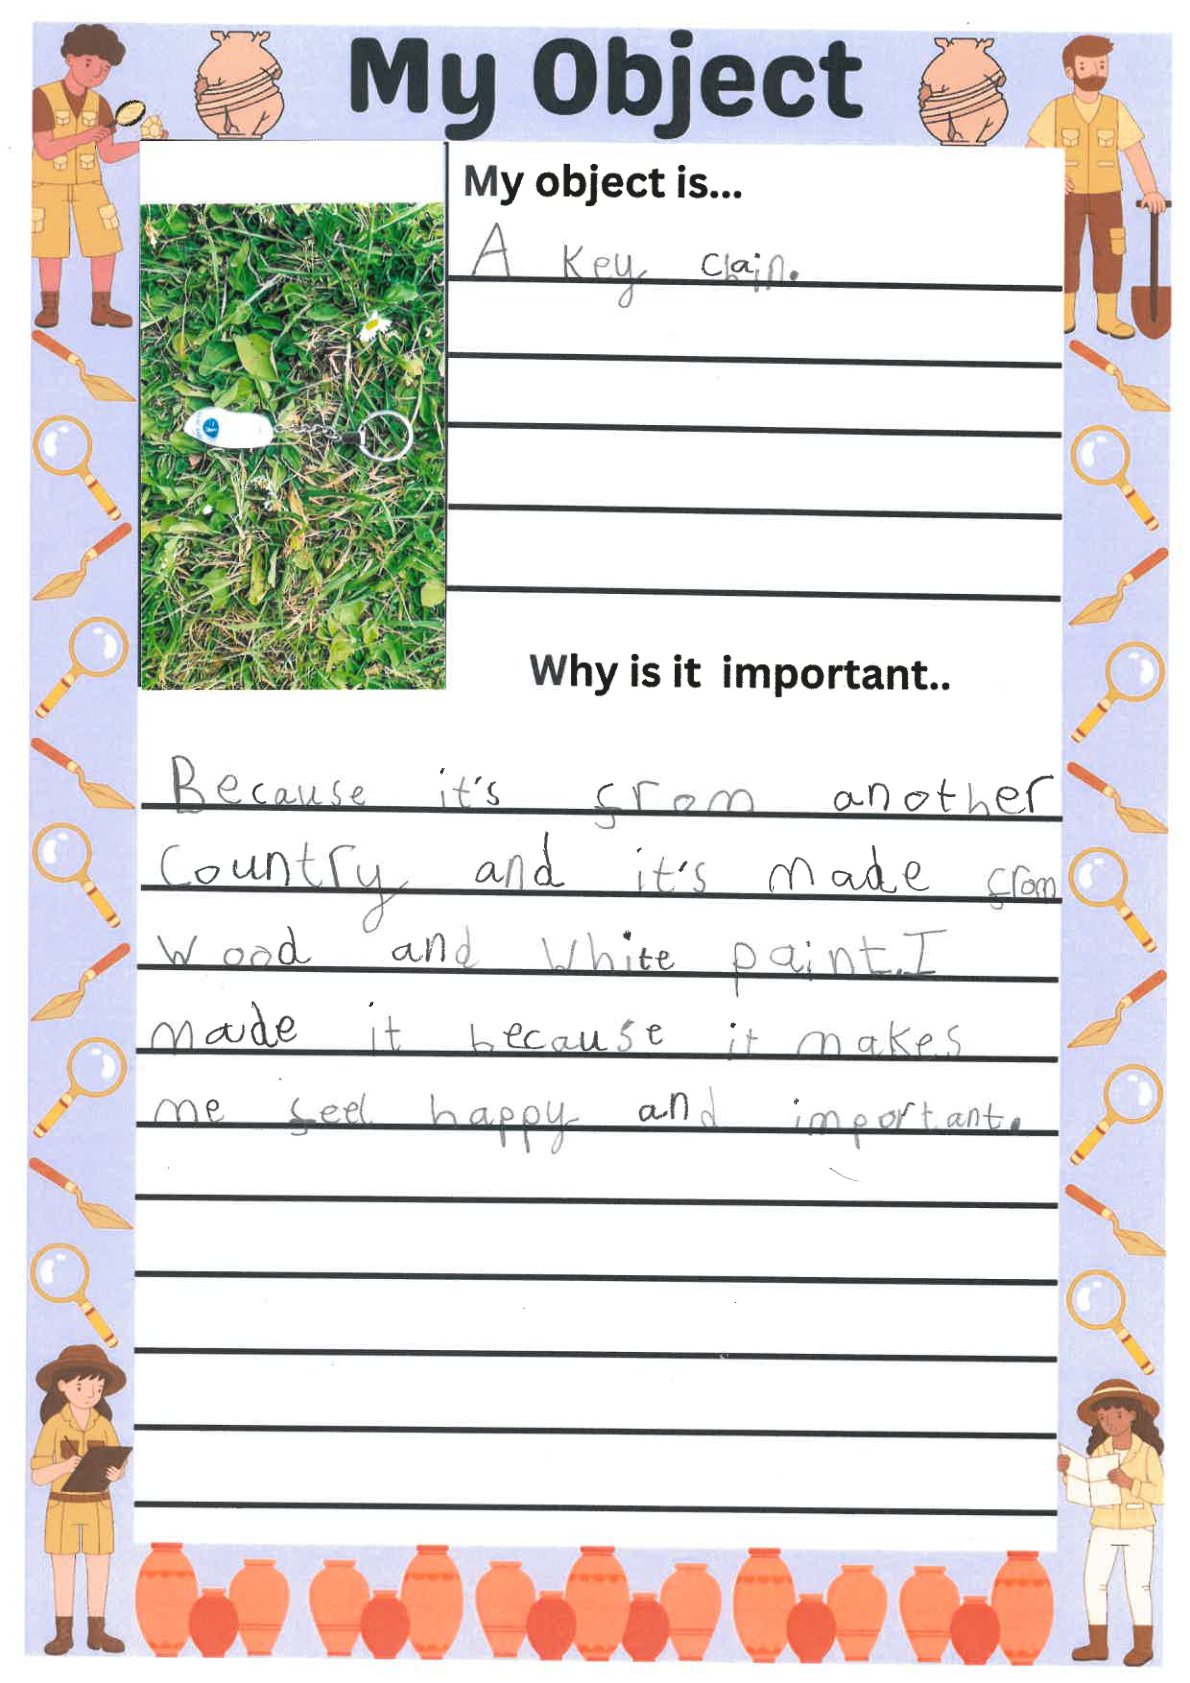 My Object
My object is...
A Key chain.
Why is it important..
Because it's from another
Country and it's made from
wood and white paint. I
made it because it makes
me feel happy and important.